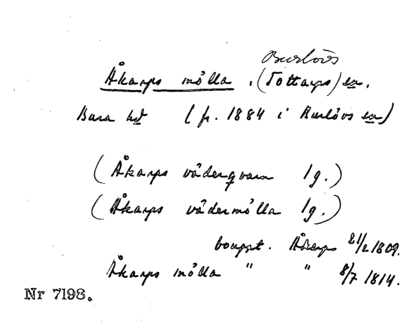 Burlövs
Åkarps mölla, (Tottarps) sn,
Bara hd (fr. 1884 i Burlövs sn)
(Åkarps väderqvarn lg.)
(Åkarps vädermölla lg.)
bouppt. Åkarp 21/2 1809.
Åkarps mölla " " 8/7 1814.
Nr 7198.